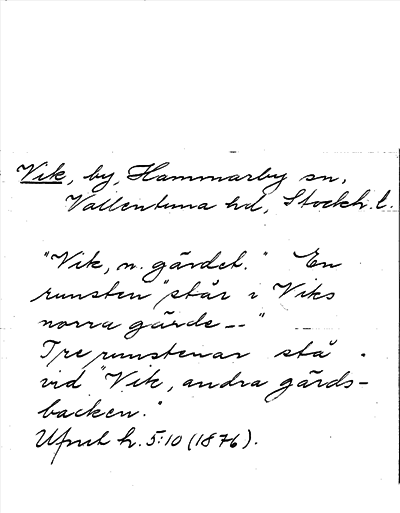 Vik, by, Hammarby sn,
Vallentuna hd, Stockh. l.
"Vik, n. gärdet." En
runsten "står i Viks
norra gärde--"
Tre runstenar stå
vid "Vik, andra gärds-
backen."
Ufmt h. 5:10 (1876).